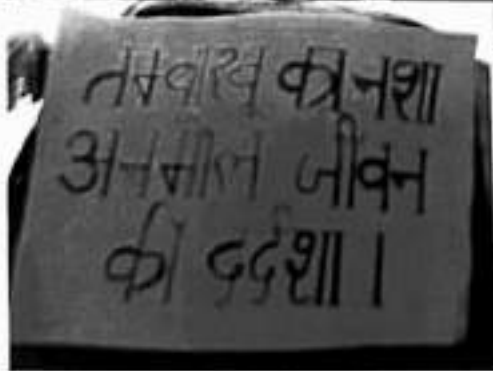 तम्बाखू का नशा
अनमोल जीवन
की दुर्दशा।